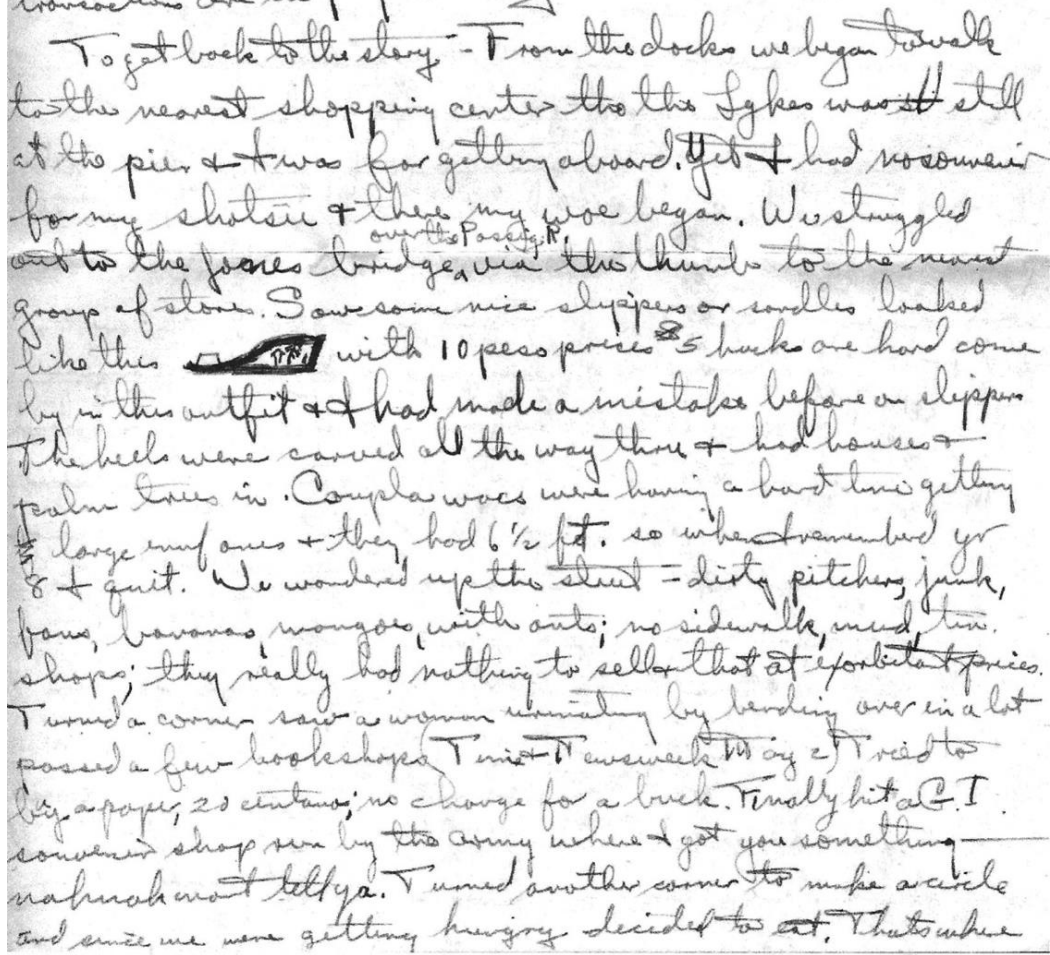 transactions are
To get back to the story - From the docks we began to walk
to the nearest shopping center tho the Sykes was still
at the pier & I was for getting aboard. Yet I had no souvenir
for my shatsie & there my woe began. We struggled
over the Passig R.
out to the Jones bridge, via the thumb to the nearest
group of stores. Saw some nice slippers or sandles looked
like this with 10 peso prices 5 bucks are hard come
by in this outfit & I had made a mistake before on slippers
The heels were carved all the way thru & had houses &
palm trees in. Coupla wacs were having a hard time getting
large enuf ones & they had 6 1/2 ft. so when I remembered yr
8 I quit. We wondered up the street - dirty pitchers, junk,
fans, bananas, mangoes, with ants; no sidewalk, mud, tin
shops; they really had nothing to sell & that at exorbitant prices.
Turned a corner saw a woman urinating by bending over in a lot
passed a few bookshops (Time & Newsweek May 2) Tried to
buy a paper, 20 centavos; no change for a buck. Finally hit a G.I
souvenir shop run by the army where I got you something
nahnah wont tell ya. Turned another corner to make a circle
and since we were getting hungry decided to eat. Thats where